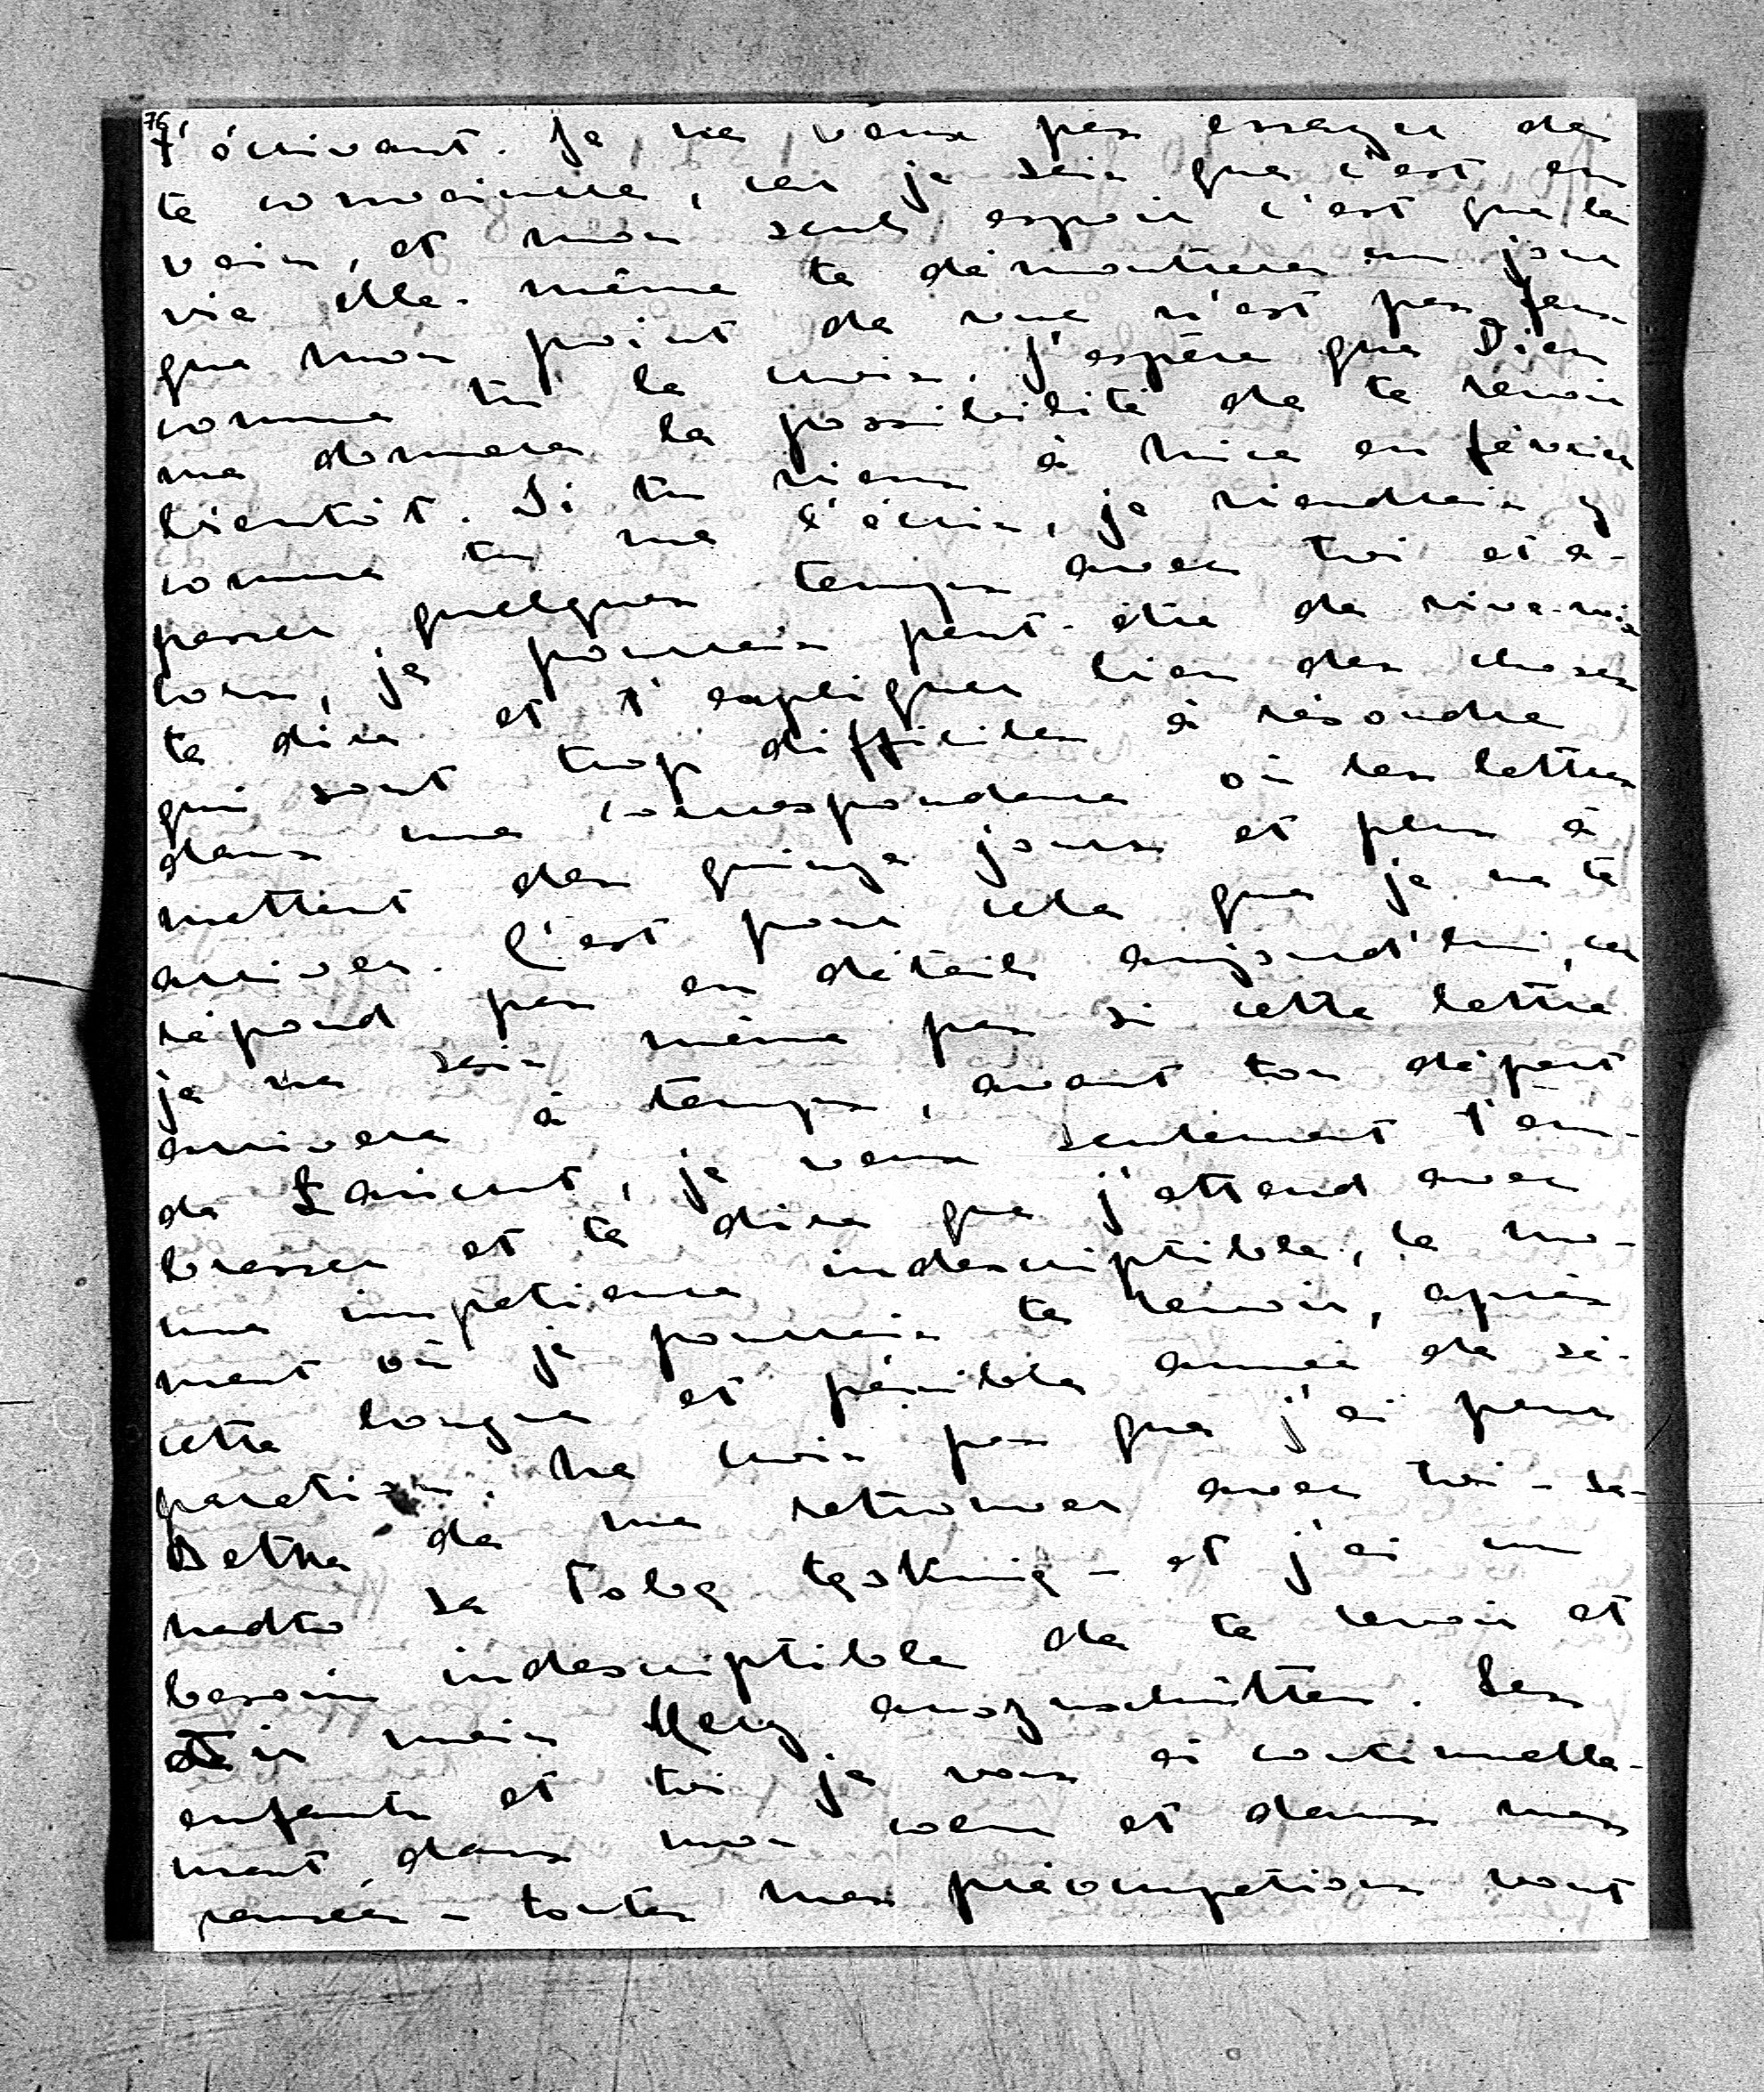 76
t'écrivant. Je ne veux pas essayer de
te convaincre, car je sais que c'est en
vain, et mon seul espoir c'est que la
vie elle-même te démontrera un jour
que mon point de vue n'est pas faux
comme tu le crois. J'espère que Dieu
me donnera la possibilité de te revoir
bientôt. Si tu viens à Nice en février
comme tu me l'écris, je viendrais y
passer quelques temps avec toi et a-
lors, je pourrais peut-être de vive-voix
te dire et t'expliquer bien des choses
qui sont trop difficiles à résoudre
dans une correspondance où les lettres
mettent des quinze jours et plus à
arriver. C'est pour cela que je ne te
répond pas en détails aujourd'hui, car
je ne sais même pas si cette lettre
arrivera à temps, avant ton départ
de Łańcut, je veux seulement t'em-
brasser et te dire que j'attend avec
une impatience indescriptible, le mo-
ment où je pourrais te revoir, après
cette longue et pénible année de sé-
paration. Ne crois pas que j'ai peur
Betka de me retrouver avec toi - za-
nadto za Tobą tęsknię - et j'ai un
besoin indescriptible de te revoir et
dir mein Herz auszuschütten. Les
enfants et toi je vous ai continuelle-
ment dans mon cœur et dans mes
pensées - toutes mes préoccupations vont